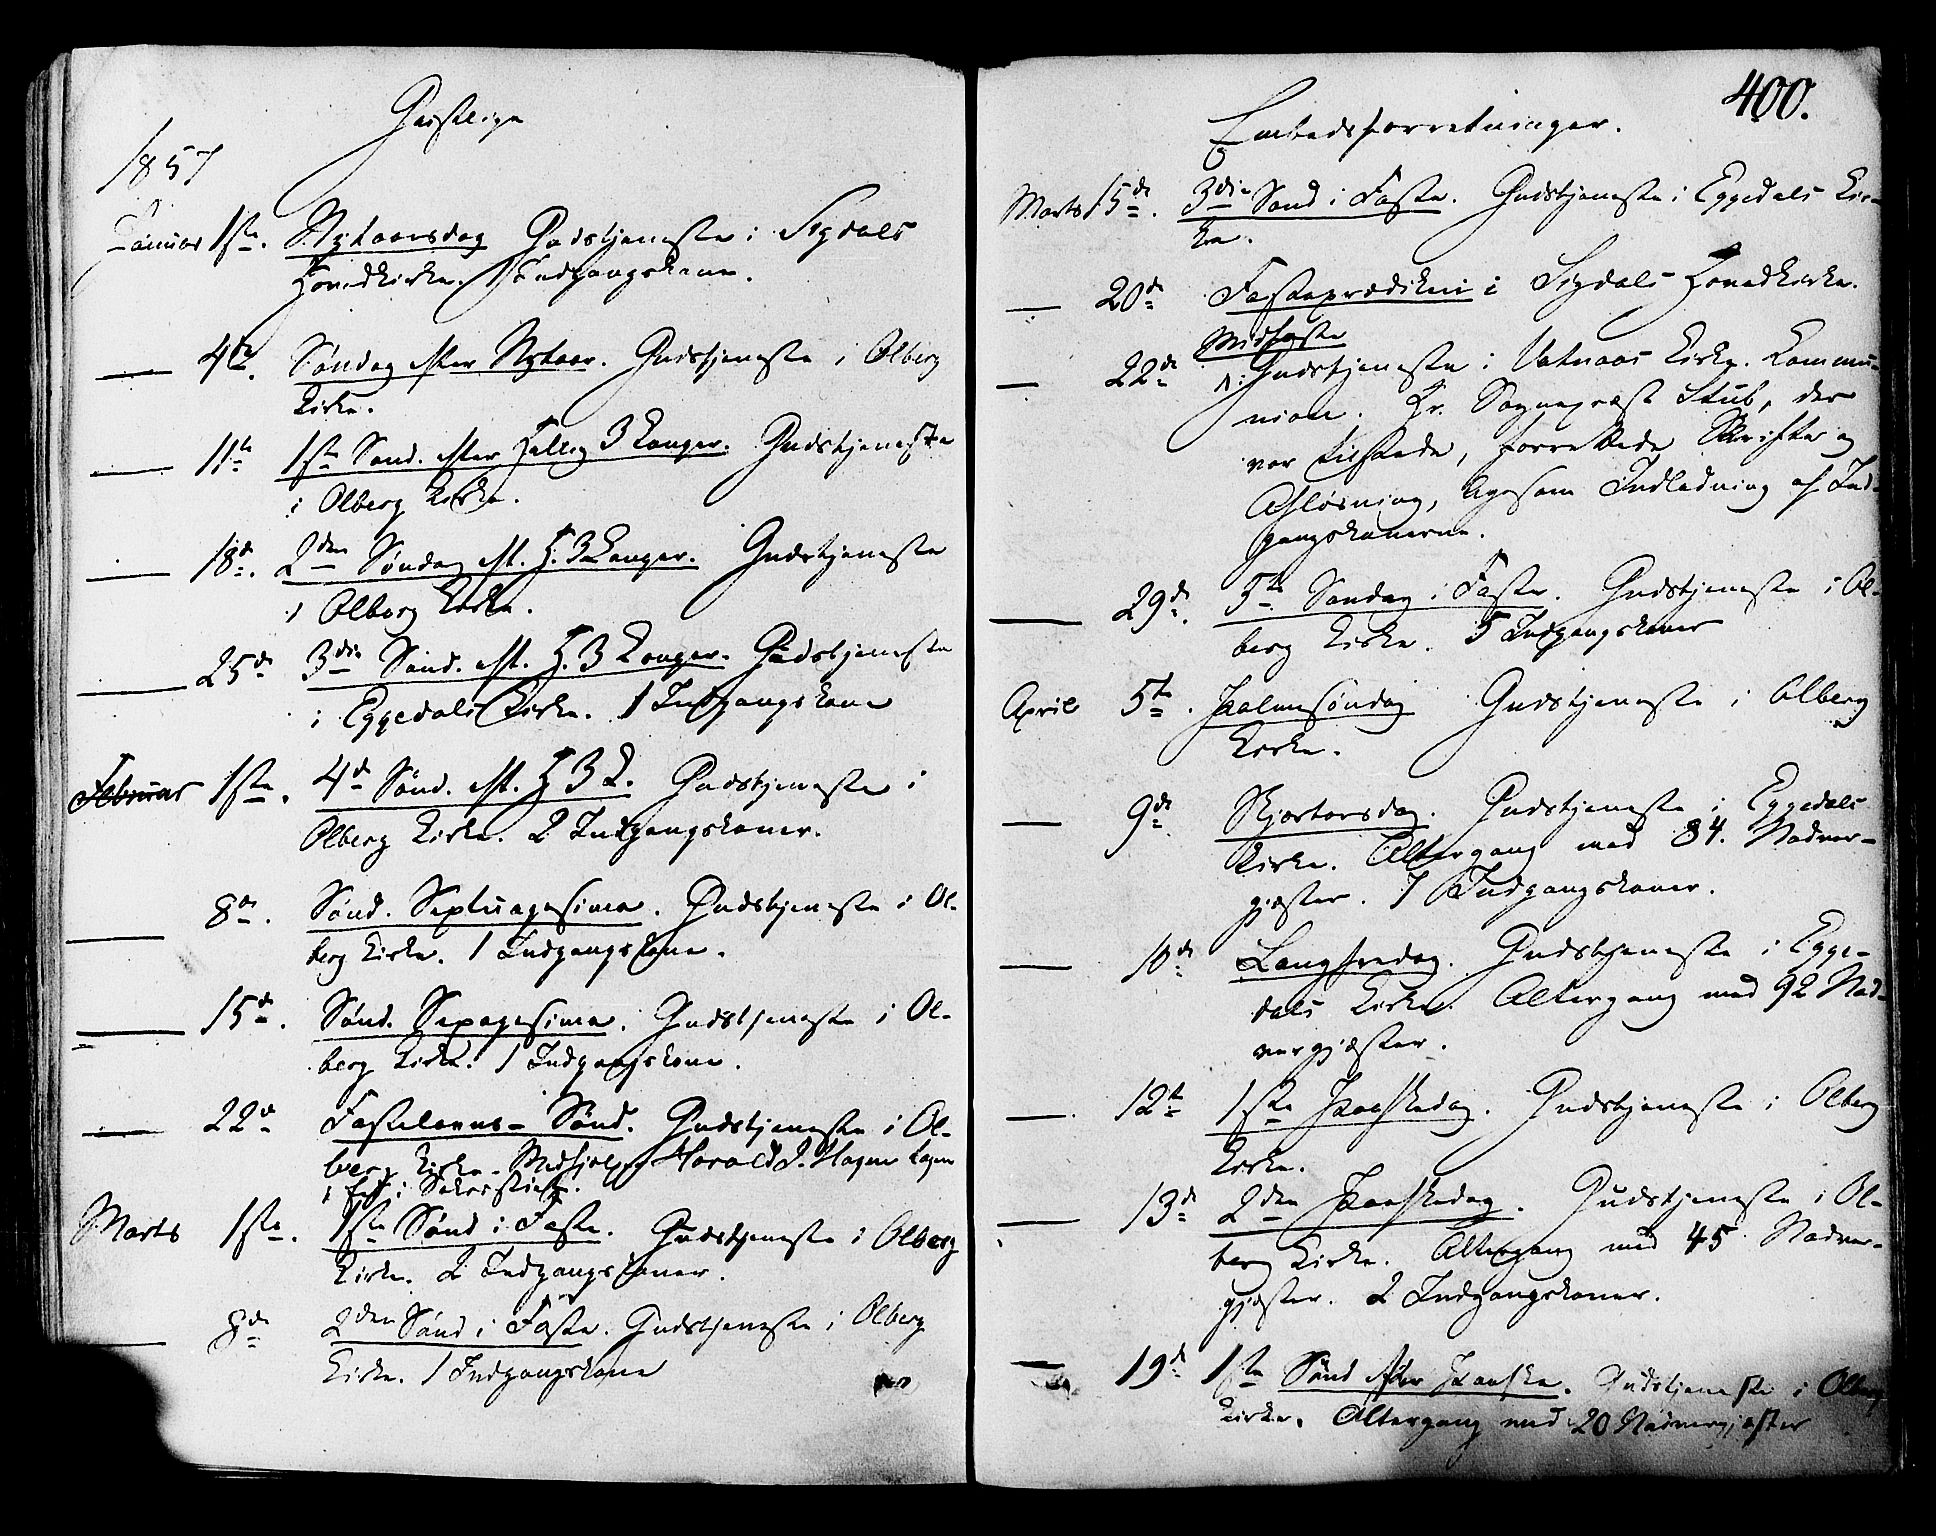 Geistlige
1857
Januar 1ste. Nytaarsdag Gudstjeneste i Sigdals
Hovedkirke. 1 Indgangskone.
— 4de. Søndag efter Nytaar. Gudstjeneste i Olberg
Kirke.
— 11te 1ste Sønd. efter Hellig 3 Konger. Gudstjeneste
i Olberg Kirke.
— 18de. 2den Søndag eft. H. 3 Konger. Gudstjeneste
i Olberg Kirke.
— 25de 3die Sønd. eft. H. 3 Konger. Gudstjeneste
i Eggedals Kirke. 1 Indgangskone
Februar 1ste. 4de Sønd. eft. H 3 K. Gudstjeneste i
Olberg Kirke. 2 Indgangskoner.
— 8de. Sønd. Septuagesima. Gudstjeneste i Ol-
berg Kirke. 1 Indgangskone.
— 15de. Sønd. Sexagesima. Gudstjeneste i Ol-
berg Kirke. 1 Indgangskone.
— 22de Fastelavns-Sønd. Gudstjeneste i Ol-
berg Kirke. Medhjelper Harald J. Hagen
i Sakristiet.
Marts 1ste. 1ste Sønd i Faste. Gudstjeneste i Olberg
Kirke. 2 Indgangskoner.
— 8de 2den Sønd i Faste. Gudstjeneste i Olberg
Kirke. 1 Indgangskone
400.
Embedsforretninger.
Marts 15de. 3die Sønd i Faste. Gudstjeneste i Eggedals Kir-
ke.
— 20de Fasteprædiken i Sigdals Hovedkirke.
Midfaste
— 22de Gudstjeneste i Vatnaas Kirke. Kommu-
nion. Hr. Sognepræst Stub, der
var tilstede, forrettede Skrifte og
Afløsning, ligesom Indledning af Ind-
gangskonerne.
— 29de. 5te Søndag i Faste. Gudstjeneste i Ol-
berg Kirke. 5 Indgangskoner
April 5te. Palmesøndag Gudstjeneste i Olberg
Kirke.
— 9de Skjærtorsdag. Gudstjeneste i Eggedals
Kirke. Altergang med 84. Nadver-
gjæster. 7 Indgangskoner.
— 10de Langfredag. Gudstjeneste i Egge-
dals Kirke. Altergang med 92 Nad-
vergjæster.
— 12te 1ste Paaskedag. Gudstjeneste i Olberg
Kirke.
— 13de 2den Paaskedag. Gudstjeneste i Ol-
berg Kirke. Altergang med 45 Nadver-
gjæster. 2 Indgangskoner.
— 19de 1ste Sønd efter Paaske. Gudstjeneste i Olberg
Kirke. Altergang med 20 Nadvergjæster